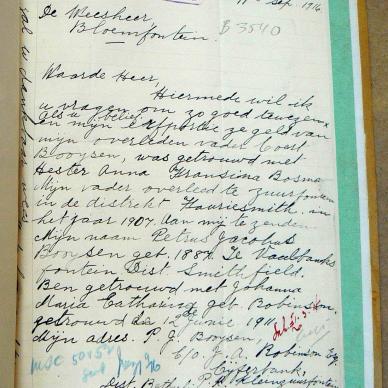 Sep. 1916
De Weesheer,
B 3540
Bloemfontein.
Waarde Heer,
Hiermede wil ik
u vragen om zo goed te wezen
als u belief
en mijn erfportie ze geld van
mijn overleden vader Coert
Booysen, was getrouwd met
Hester Anna Fransina Bosma
Mijn vader overleed te Zuurfontein
in de distrekt Fauriesmith. in
het jaar 1907. Aan mij te zenden
Mijn naam Petrus Jacobus
Booysen geb. 1887. Te Vaalbank
fontein Dist. Smithfield.
Ben getrouwd met Johanna
Maria Catharina geb. Robinson.
getrouwd 12 Junie 1911.
Mijn adres. P. J. Booysen,
c/o J. A. Robinson Esq.
Dist. Bethul